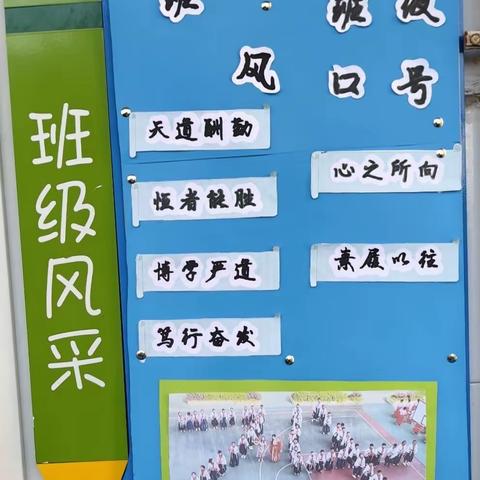 班级风采
班风
天道酬勤
恒者能胜
博学严道
笃行奋发
班级口号
心之所向
素履以往